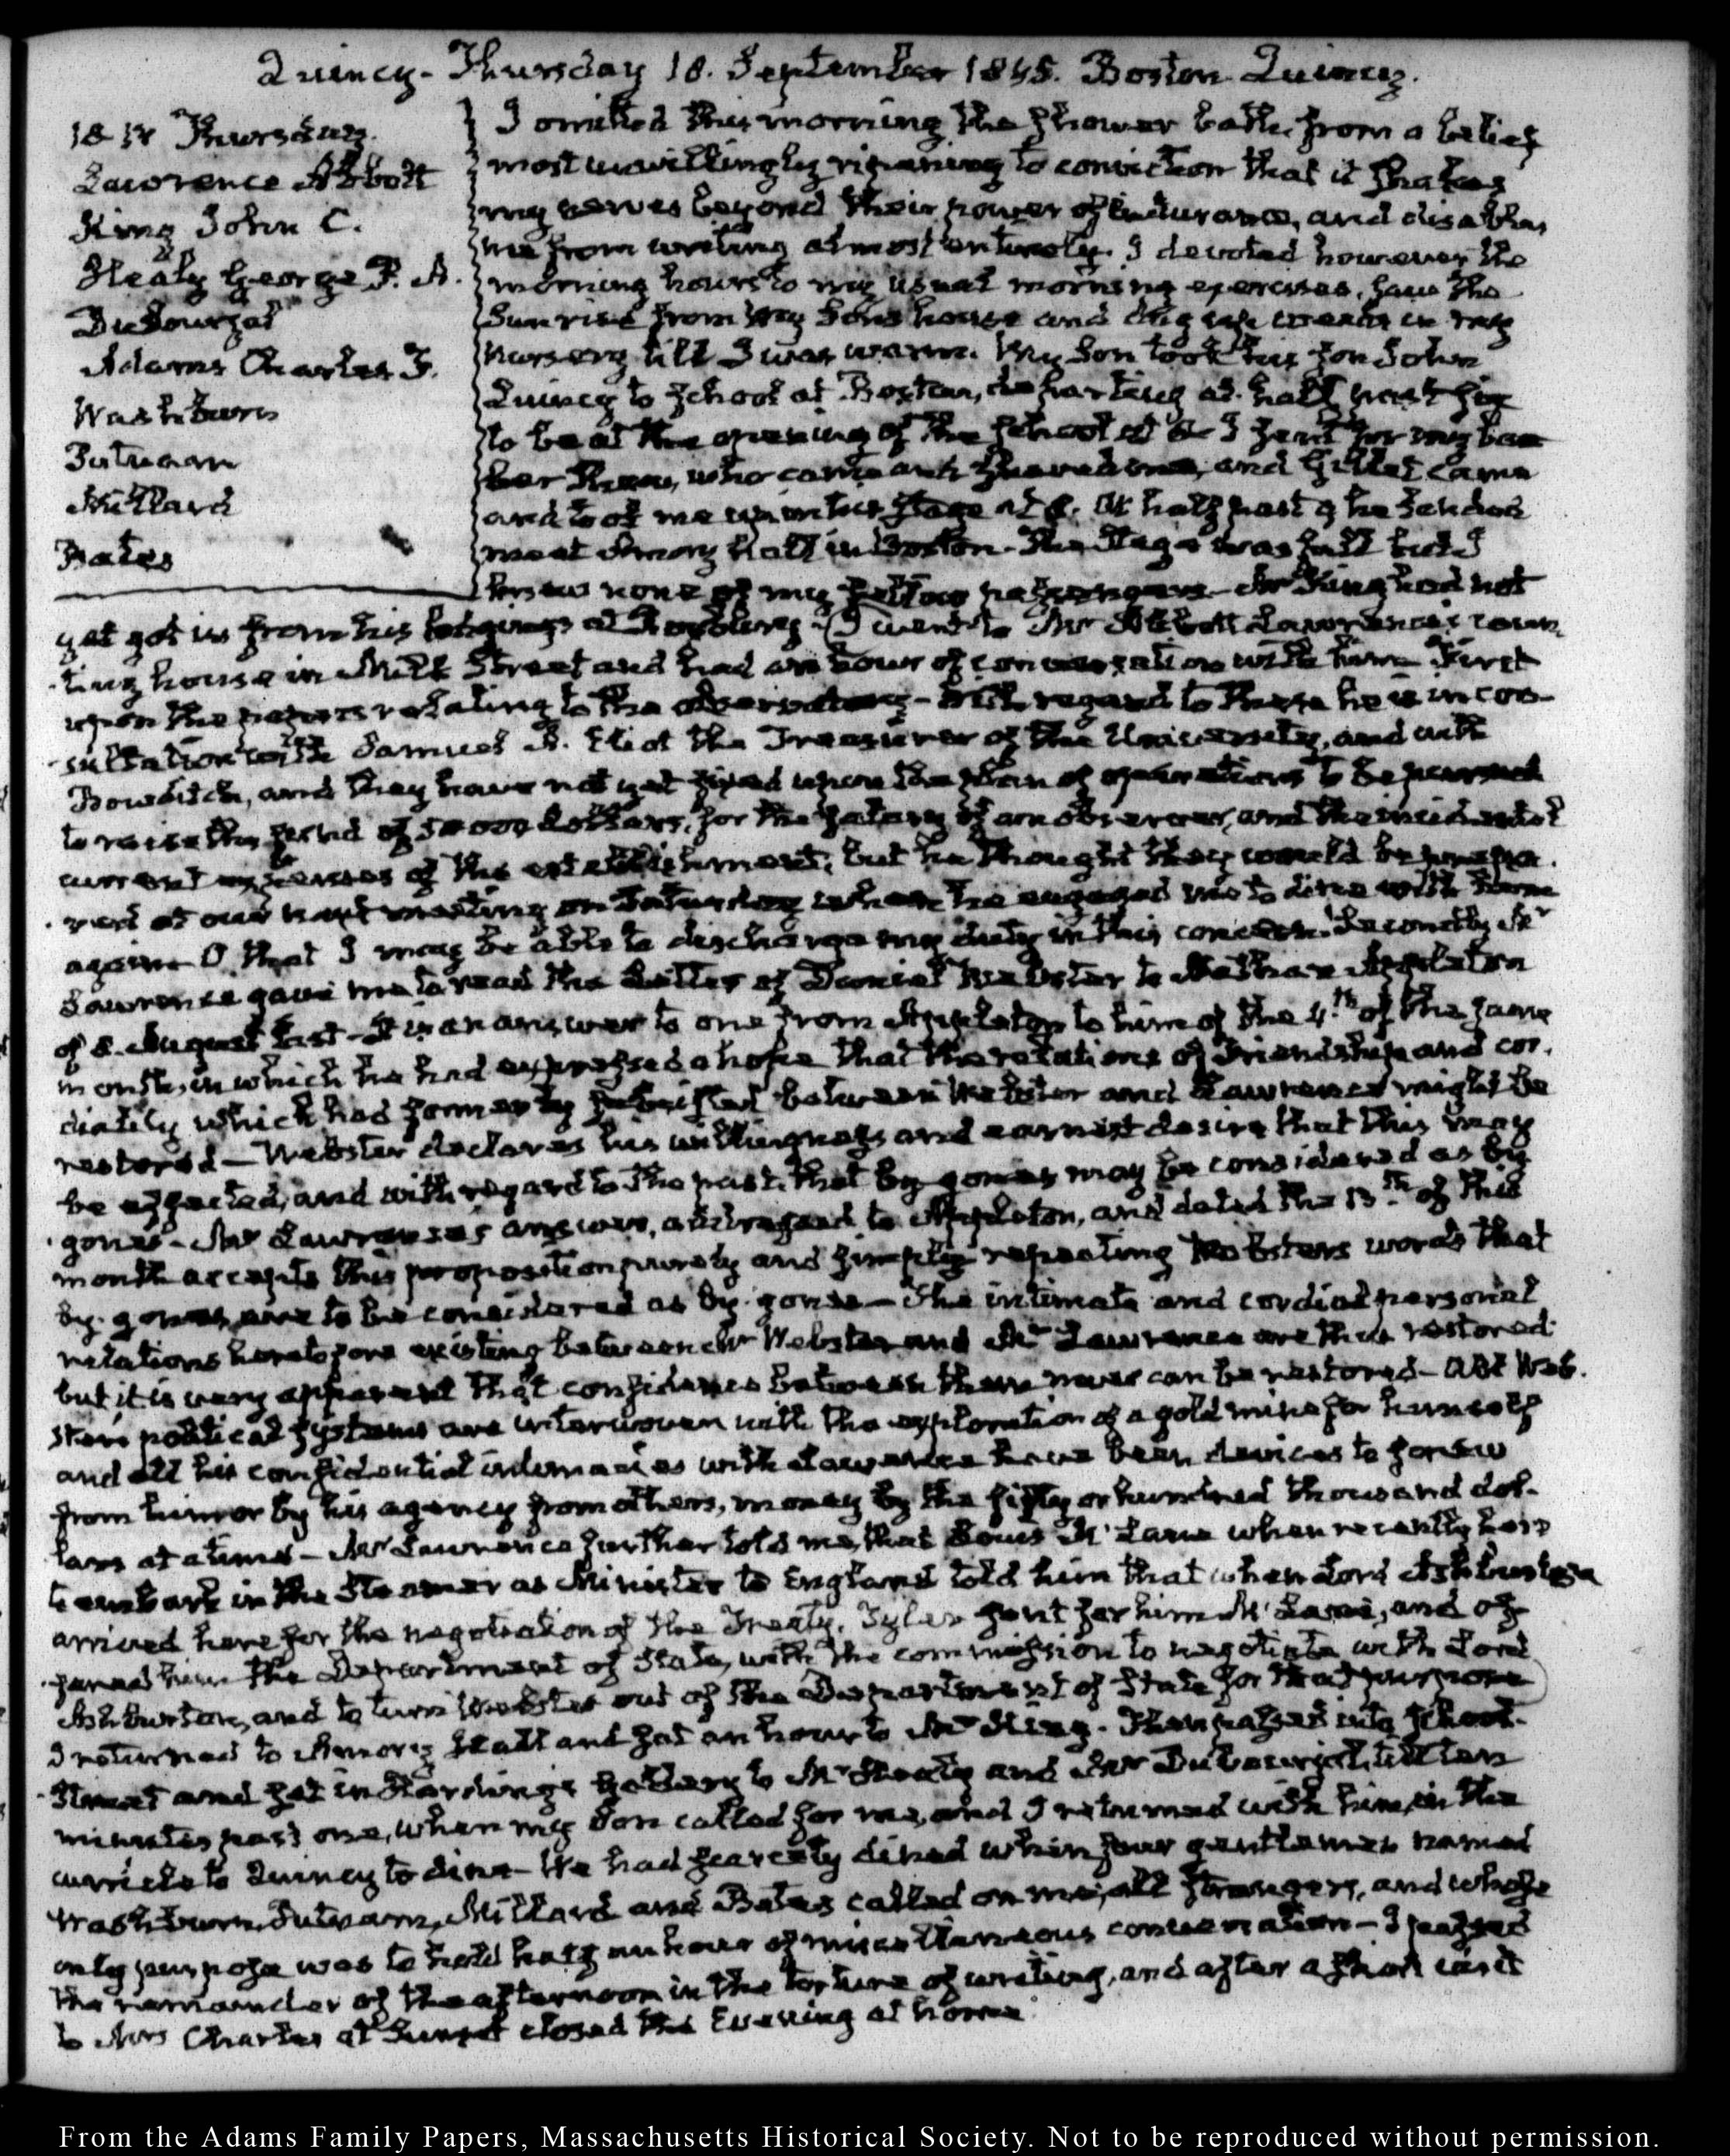 Quincy - Thursday 18. September 1845. Boston Quincy.
18. IV Thursday.
Lawrence Abbott
King John C.
Healy George P. A.
Dubourjal
Adams Charles F.
Washburn
Putnam
Millard
Bates
I omitted this morning the shower bath, from a belief
most unwillingly ripening to conviction that it shakes
my nerves beyond their power of endurance, and disables
me from writing almost entirely. I devoted however the
morning hours to my usual morning exercises. saw the
Sun rise from my Sons house and dug up weeds in my
nursery till I was warm. My Son took his son John
Quincy to school at Boston, departing at half past six
to be at the opening of the school at 8. I sent for my bar
ber who came and shaved me, and Gillet came
and took me up in his Stage at 8. At half past 9 he landed
me at Amory hall in Boston. The Stage was full but I
knew none of my fellow passengers. Mr King had not
yet got in from his lodgings at Roxbury. I went to Mr Abbott Lawrence's coun
ting house in Milk Street and had an hour of conversation with him. First
upon the papers relating to the observatory - With regard to these he is in con-
sultation with Samuel A. Eliot the Treasurer of the University, and with
Bowditch, and they have not yet fixed upon the plan of operations to be pursued
to raise the fund of 50000 dollars, for the salary of an observer, and the incidental
current expenses of the establishment; but he thought they would be prepa-
red at our next meeting on Saturday when he engaged me to dine with him
again. O, that I may be able to discharge my duty in this concern. Secondly Mr
Lawrence gave me to read the Letter of Daniel Webster to Nathan Appleton
of 8. August last - It is an answer to one from Appleton to him of the 4th of the same
month, in which he had expressed a hope that the relations of friendship and cor.
diality which had formerly subsisted between Webster and Lawrence might be
restored — Webster declares his willingness and earnest desire that this may
be effected, and with regard to the past, that by gones may be considered as by
gones - Mr Lawrences answer, addressed to Appleton, and dated the 13th of this
month accepts this proposition purely and simply repeating Websters words that
by-gones are to be considered as by-gones — The intimate and cordial personal
relations heretofore existing between Mr Webster and Mr Lawrence are thus restored
but it is very apparent that confidence between them never can be restored - All Web.
sters political systems are interwoven with the exploration of a gold mine for himself
and all his confidential intimacies with Lawrence have been devices to screw
from him or by his agency from others, money by the fifty or hundred thousand dol-
lars at a time - Mr Lawrence further told me, that Louis McLane when recently here
to embark in the Steamer as Minister to England told him that when Lord Ashburton
arrived here for the negotiation of the Treaty, Tyler sent for him McLane, and of-
fered him the Department of State, with the commission to negotiate with Lord
Ashburton, and to turn Webster out of the Department of State for that purpose
I returned to Amory Hall and sat an hour to Mr King. Then passed into School-
Street and sat in Harding's Gallery to Mr Healy and Mr Dubourjal, till ten
minutes past one, when my Son called for me, and I returned with him, in the
curricle to Quincy to dine - We had scarcely dined when four gentlemen named
Washburn, Putnam, Millard and Bates called on me, all strangers, and whose
only purpose was to hold half an hour of miscellaneous conversation - I passed
the remainder of the afternoon in the torture of writing, and after a short visit
to Mrs Charles at Sunset closed the Evening at home.
From the Adams Family Papers, Massachusetts Historical Society. Not to be reproduced without permission.